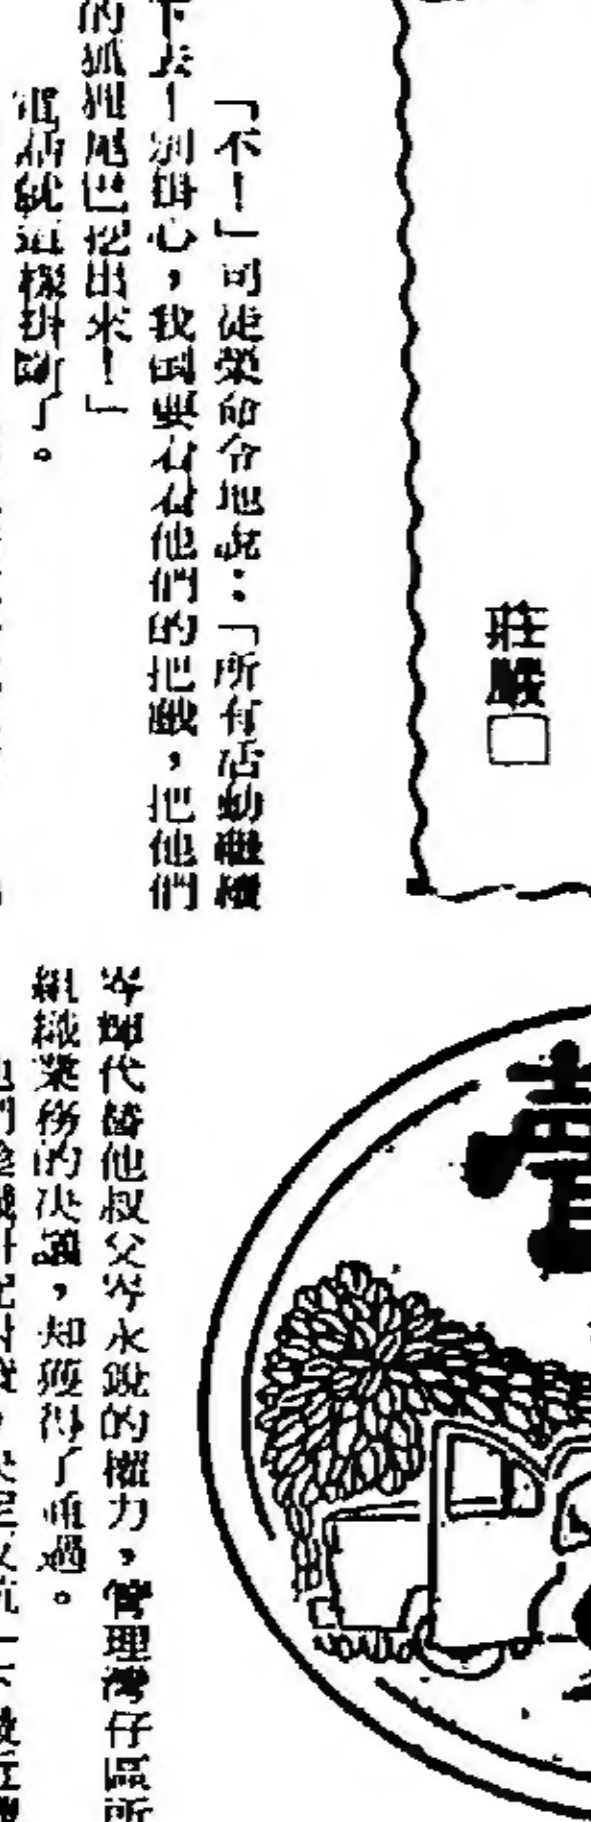 莊嚴
「不！」司徒榮命令地說：「所有活動繼續
下去！別掛心，我倒要看看他們的把戲，把他們
的狐狸尾巴挖出來！」
電話就這樣掛斷了。
岑輝代替他叔父岑永銳的權力，管理灣仔區所
組織業務的决議，却獲得了通過。